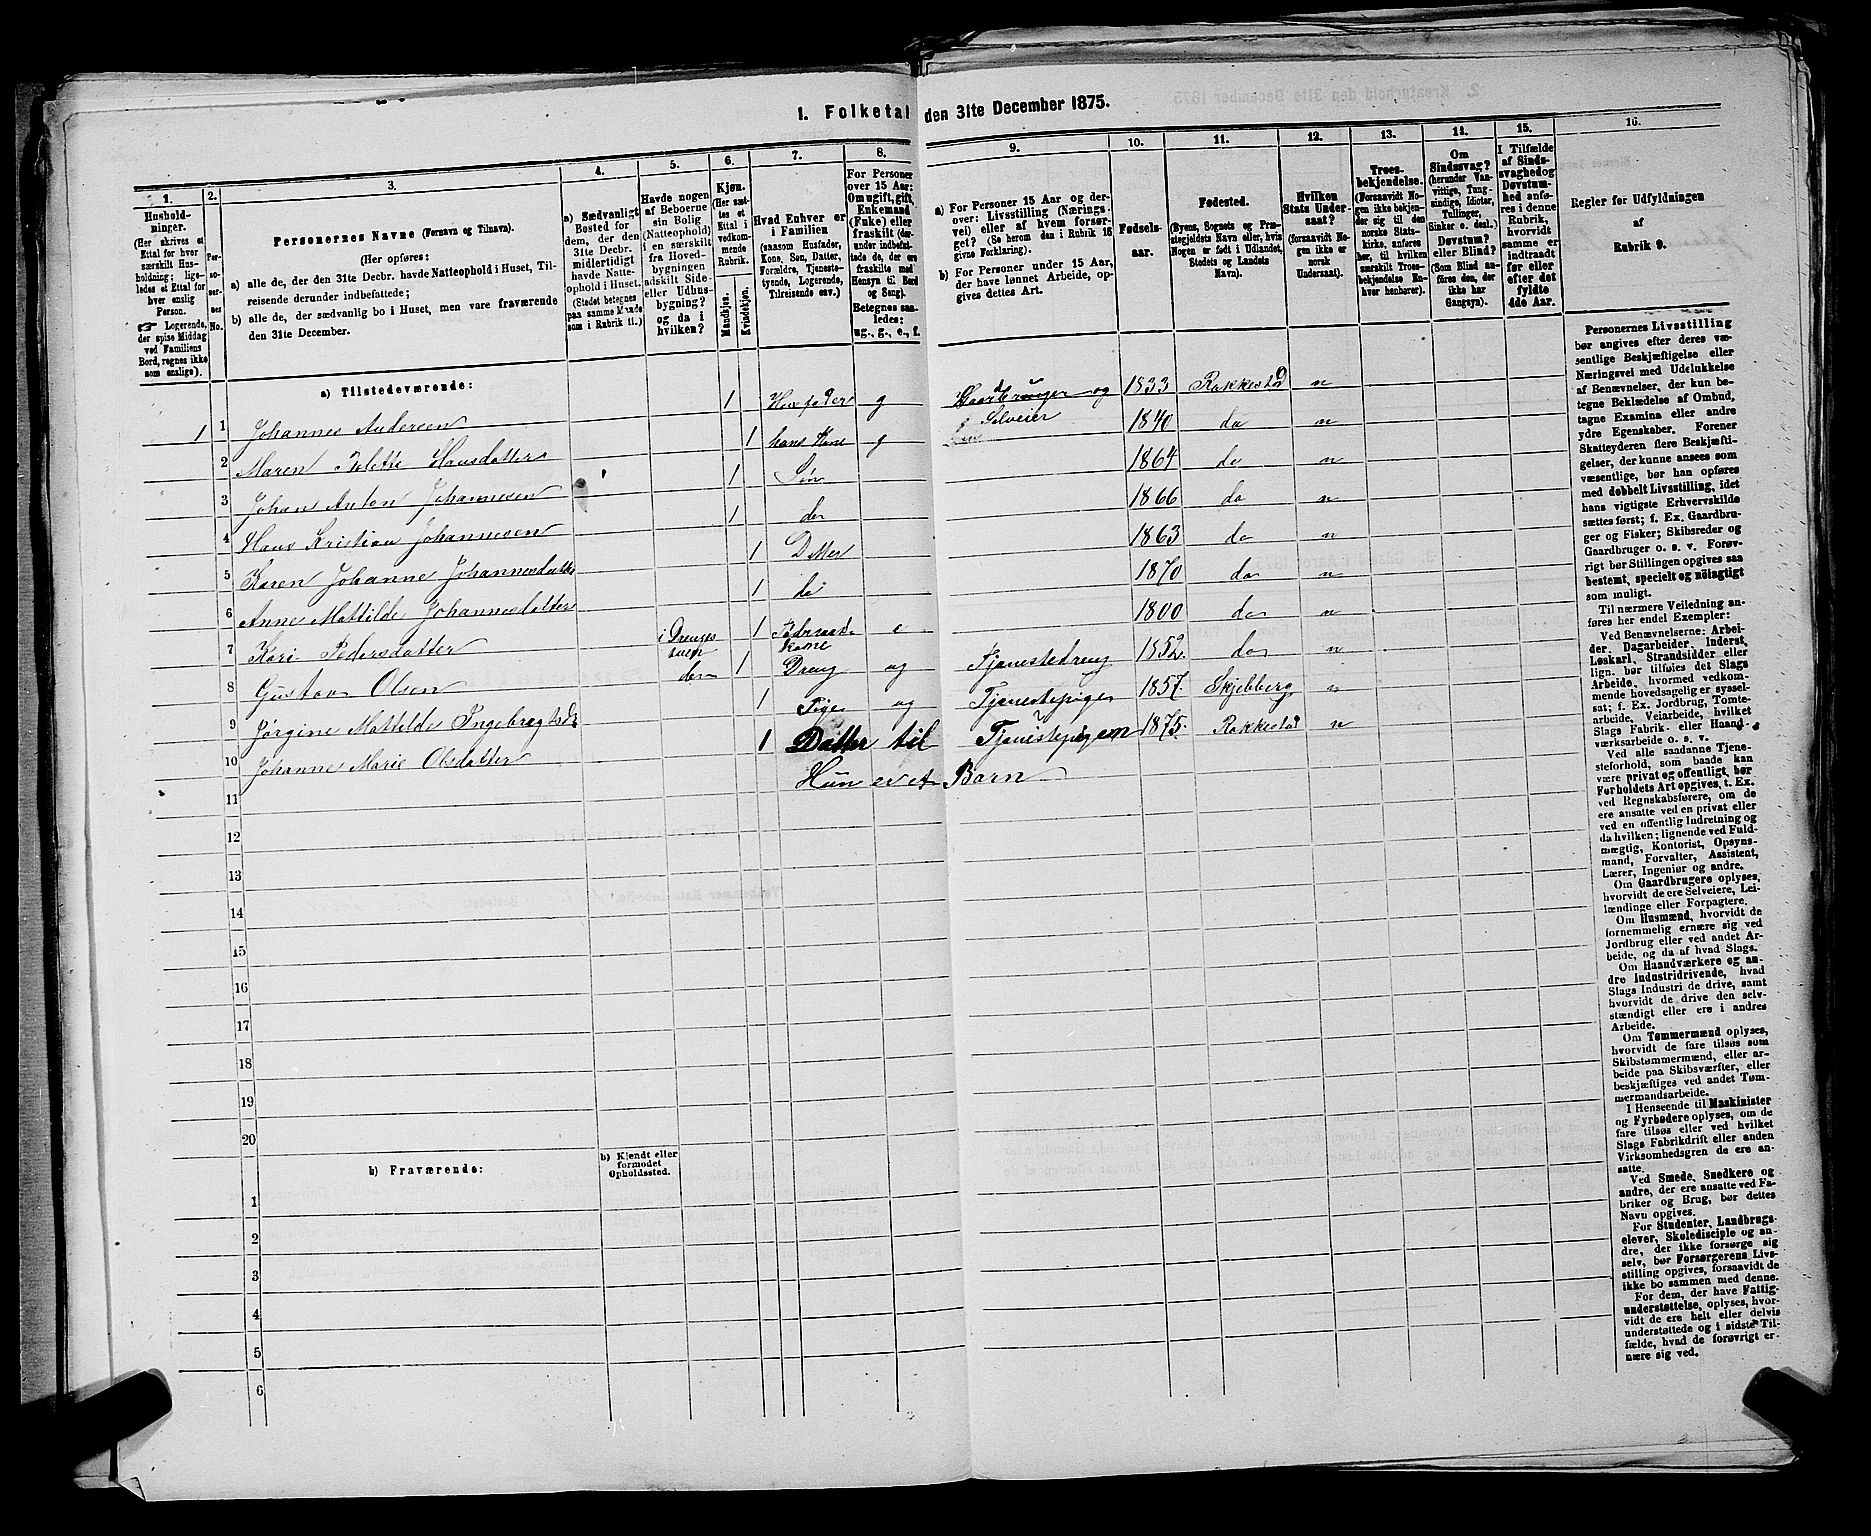 1. Folketal den 31te December 1875.
1.
Hushold-
ninger.
(Her skrives et
Ettal for hver
særskilt Hus-
holdning; lige-
ledes et Ettal for
hver enslig
Person.
☞ Logerende,
der spise Middag
ved Familiens
Bord, regnes ikke
som enslige).
2.
Per-
so-
ner-
nes
No.
3.
Personernes Navne (Fornavn og Tilnavn).
(Her opføres:
a) alle de, der den 31te Decbr. havde Natteophold i Huset, Til-
reisende derunder indbefattede;
b) alle de, der sædvanlig bo i Huset, men vare fraværende
den 31te December.
4.
a) Sædvanligt
Bosted for
dem, der den
31te Decbr.
midlertidigt
havde Natte-
ophold i Huset.
(Stedet betegnes
paa samme Maade
som i Rubrik 11.)
5.
Havde nogen
af Beboerne
sin Bolig
(Natteophold)
i en særskilt
fra Hoved-
bygningen
adskilt Side-
eller Udhus-
bygning?
og da i
hvilken?
6.
Kjøn.
(Her sæt-
tes et
Ettal i
vedkom-
mende
Rubrik.
Mandkjøn.
Kvindekjøn.
7.
Hvad Enhver er
i Familien
(saasom Husfader,
Kone, Søn, Datter,
Forældre, Tjeneste-
tyende, Logerende,
Tilreisende osv.)
8.
For Personer
over 15 Aar:
Om ugift, gift,
Enkemand
(Enke) eller
fraskilt (der-
under indbefat-
tede de, der ere
fraskilte med
Hensyn til Bord
og Seng).
Betegnes saa-
ledes:
ug., g., e., f.
9.
a) For Personer 15 Aar og der-
over: Livsstilling (Nærings-
vei) eller af hvem forsør-
get? (Se herom den i Rubrik 16
givne Forklaring).
b) For Personer under 15 Aar,
der have lønnet Arbeide, op-
gives dettes Art.
10.
Fødsels-
aar.
11.
Fødested.
(Byens, Sognets og Præ-
stegjeldets Navn eller, hvis
Nogen er født i Udlandet,
Stedets og Landets
Navn).
12.
Hvilken
Stats Under-
saat?
(forsaavidt No-
gen ikke er
norsk
Undersaat).
13.
Troes-
bekjendelse.
(Forsaavidt No-
gen ikke bekjen-
der sig til den
norske Stats-
kirke, anføres
her, til hvilken
særskilt Troes-
bekjendelse En-
hver henhører).
14.
Om
Sindssvag?
(herunder Van-
vittige, Tung-
sindige, Idioter,
Tullinger,
Sinker o. desl.)
Døvstum?
eller Blind?
(Som Blind an-
føres den, der
ikke har
Gangsyn).
15.
I Tilfælde
af Sinds-
svaghed og
Døvstum-
hed anfø-
res i denne
Rubrik,
hvorvidt
samme er
indtraadt
før eller
efter det
fyldte
4de Aar.
16.
Regler for Udfyldningen
af
Rubrik 9.
a) Tilstedeværende:
1 1 Johannes Andersen 1 Husfader g Gaardbruger og Selveier 1833 Rakkestad n
2 Maren Helette Hansdatter 1 hans Kone g 1840 do n
3 Johan Anton Johannesen 1 Søn 1864 do n
4 Hans Kristian Johannesen 1 do 1866 do n
5 Karen Johanne Johannesdatter 1 Datter 1863 do n
6 Anne Mattilde Johannesdatter 1 do 1870 do n
7 Kari Pedersdatter i Drenge 1 Kone e 1800 do n
8 Gustav Olsen den 1 Dreng ug Tjenestedreng 1852 do n
9 Jørgine Mattilde Ingebregtsd 1 Pige ug Tjenestepige 1857. Skjebberg n
10 Johanne Marie Olsdatter 1 Datter til Tjenestepigen 1875. Rakkestad n
Hun er et Barn
11
12
13
14
15
16
17
18
19
20
b) Fraværende:
b) Kjendt eller
formodet
Opholdssted.
1
2
3
4
5
6
Personernes Livsstilling
bør angives efter deres væ-
sentlige Beskjæftigelse eller
Næringsvei med Udelukkelse
af Benævnelser, der kun be-
tegne Beklædelse af Ombud,
tagne Examina eller andre
ydre Egenskaber. Forener
Skatteyderen flere Beskjæfti-
gelser, der kunne ansees som
væsentlige, bør han opføres
med dobbelt Livsstilling, idet
hans vigtigste Erhvervskilde
sættes først; f. Ex. Gaardbru-
ger og Fisker; Skibsreder og
Gaardbruger o. s. v. Forøv-
rigt bør Stillingen opgives saa
bestemt, specielt og nøiagtigt
som muligt.
Til nærmere Veiledning an-
føres her endel Exempler:
Ved Benævnelserne: Arbei-
der, Dagarbeider, Inderst,
Løskarl, Strandsidder eller
lign. bør tilføies det Slags
Arbeide, hvormed vedkom-
mende hovedsagelig er syssel-
sat; f. Ex. Jordbrug, Tomte-
arbeide, Veiarbeide, hvilket
Slags Fabrik- eller Haand-
værksarbeide o. s. v.
Ved alle saadanne Tjene-
steforhold, som baade kan
være privat og offentligt, bør
Forholdets Art opgives, t. Ex.
ved Regnskabsførere, om de
ere ansatte ved en privat eller
ved en offentlig Indretning og
da hvilken; lignende ved Fuld-
mægtig, Kontorist, Opsyns-
mand, Forvalter, Assistent,
Lærer, Ingeniør og andre.
Om Gaardbrugere oplyses,
hvorvidt de ere Selveiere, Lei-
lændinge eller Forpagtere.
Om Husmænd, hvorvidt de
fornemmelig ernære sig ved
Jordbrug eller ved andet Ar-
beide, og da af hvad Slags.
Om Haandværkere og an-
dre Industridrivende, hvad
Slags Industri de drive, samt
hvorvidt de drive den selv-
stændigt eller ere i andres
Arbeide.
Om Tømmermænd oplyses,
hvorvidt de fare tilsøs som
Skibstømmermænd, eller ar-
beide paa Skibsværfter, eller
beskjæftiges ved andet Tøm-
mermandsarbeide.
I Henseende til Maskinister
og Fyrbødere oplyses, om de
fare tilsøs eller ved hvilket
Slags Fabrikdrift eller anden
Virksomhedsgren de ere an-
satte.
Ved Smede, Snedkere og
andre, der ere ansatte ved Fa-
briker og Brug, bør dettes
Navn opgives.
For Studenter, Landbrugs-
elever, Skoledisciple og an-
dre, der ikke forsørge sig
selv, bør Forsørgerens Livs-
stilling opgives, forsaavidt de
ikke bo sammen med denne.
For dem, der have Fattig-
understøttelse, oplyses, hvor-
vidt de ere helt eller delvis
understøttede og i sidste Til-
fælde, hvad de forøvrigt er-
nære sig ved.